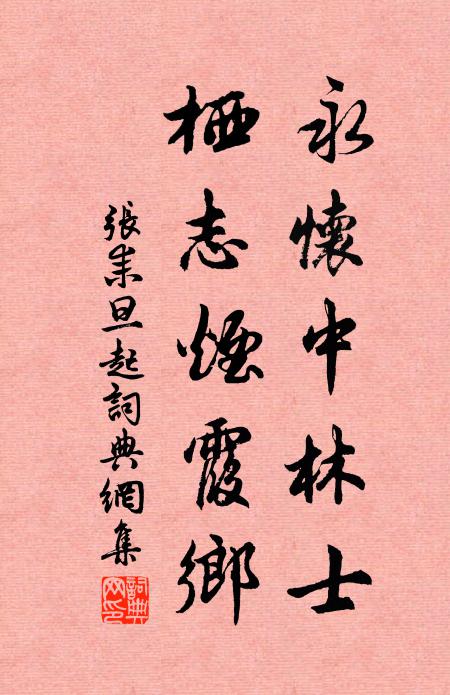 永懷中林士
栖志煙霞鄉
張耒旦起詞典網集
詞典